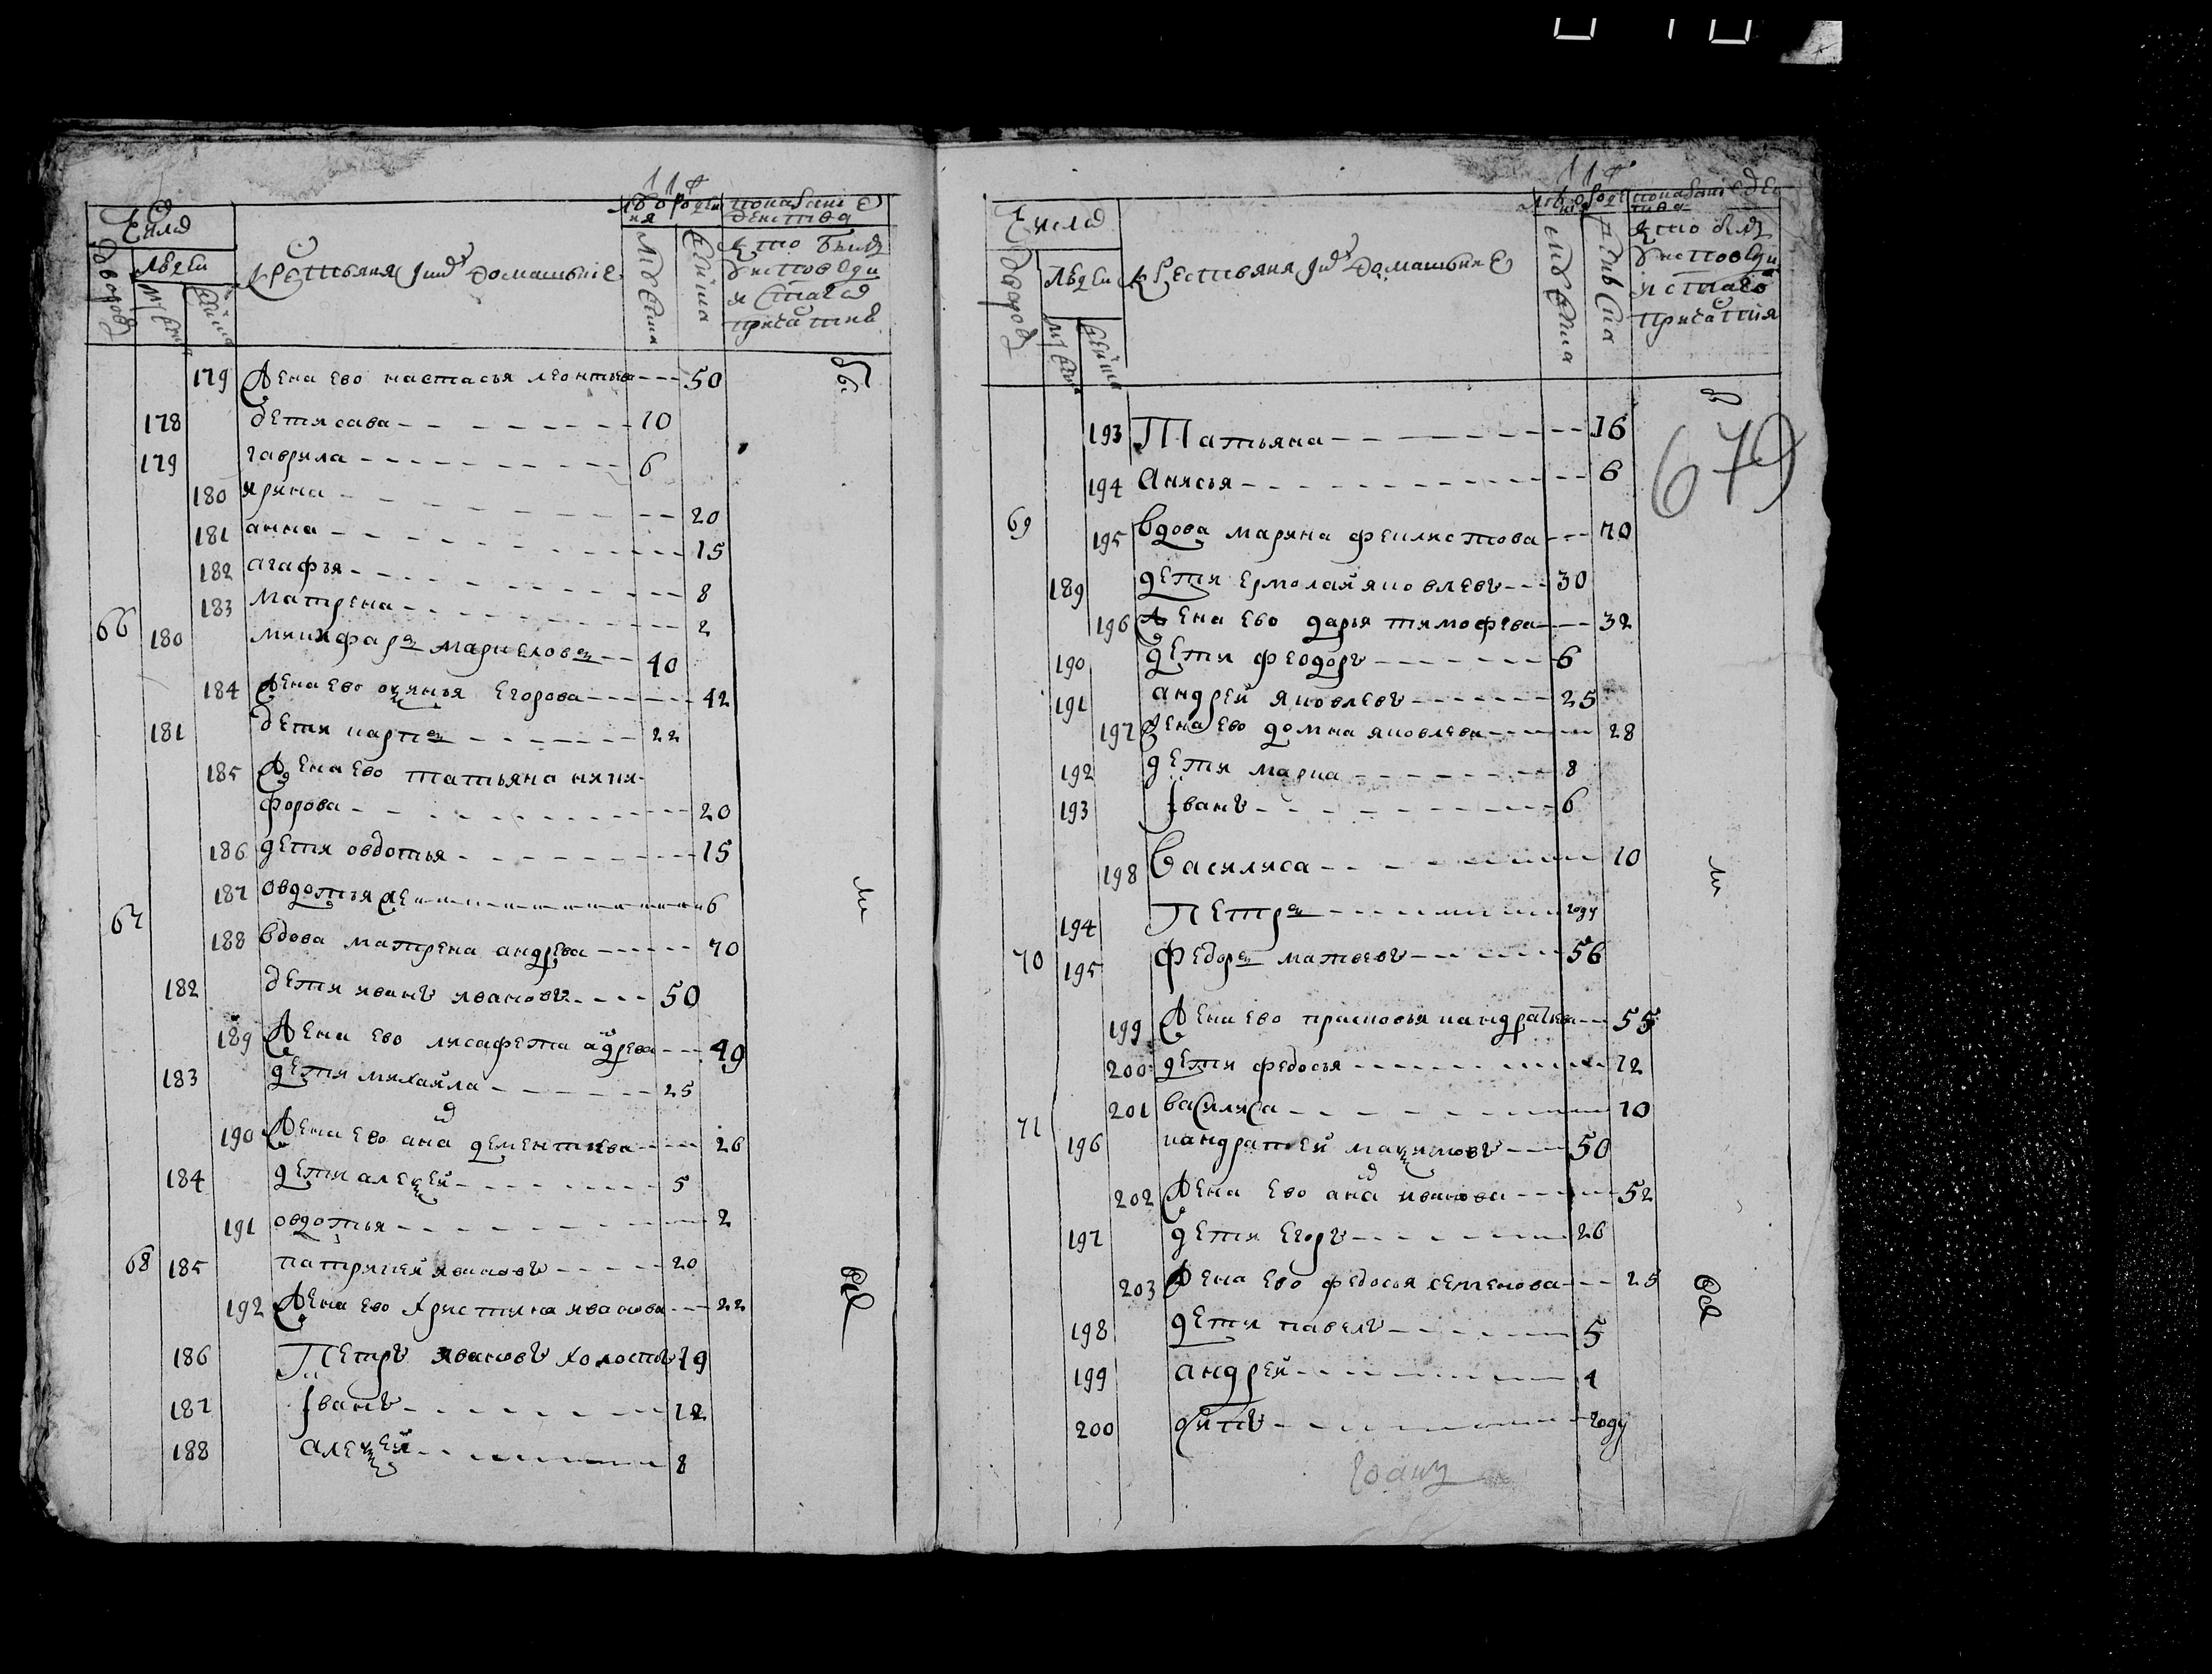 Число
дворовъ
людей
муска
женска
крестьяня и ихъ домашние
лѣта от рождения
мужеска
женска
показание действа
кто былъ
у исповеди
и святаго
причастия
179 жена ево настасья леонтьева --- 50
178 дети сава --- 10
179 гаврила --- 6
180 ирина --- 20
181 анна --- 15
182 агафья --- 8
183 матрена --- 2
66 180 --- 40
184 жена ево оксинья егорова --- 42
181 дети карпъ --- 22
185 жена ево татьяна ники-
форова --- 20
186 дети овдотья --- 15
187 овдотья же --- 6
67
188 вдова матрена андрева --- 70
182 дети иванъ ивановъ --- 50
189 жена ево лисафета адрева --- 49
183 дети михаила --- 25
190 жена ево ана дементиева --- 26
184 дети алексей --- 5
191 овдотья --- 2
68 185 патрикей ивановъ --- 20
192 жена ево христина иванова --- 22
186 Петръ ивановъ холостъ 19
187 Iванъ --- 12
188 алексей --- 8
Число
дворовъ
людей
муска
женска
крестьяня и ихъ домашние
мужеска
женска
показание действа
кто былъ
у исповеди
и святаго
причастия
679
193 Татьяна --- 16
194 Анисья --- 6
69
195 вдова марина феклистова --- 70
189 дети ермолай яковлевъ --- 30
196 жена ево дарья тимофева --- 32
190 дети феодоръ --- 6
191 андрей яковлевъ --- 25
197 жена ево домна яковлева --- 28
192 дети марка --- 8
193 Iванъ --- 6
198 Василиса --- 10
194 Петръ --- году
70 195 Федоръ матвевъ --- 56
199 жена ево прасковья кандратева --- 55
200 дети федосья --- 12
201 василиса --- 10
71 196 кандратей максимовъ --- 50
202 жена ево ана иванова --- 52
197 дети егоръ --- 26
203 жена ево федосья семенова --- 25
198 дети павелъ --- 5
199 андрей --- 4
200 --- году